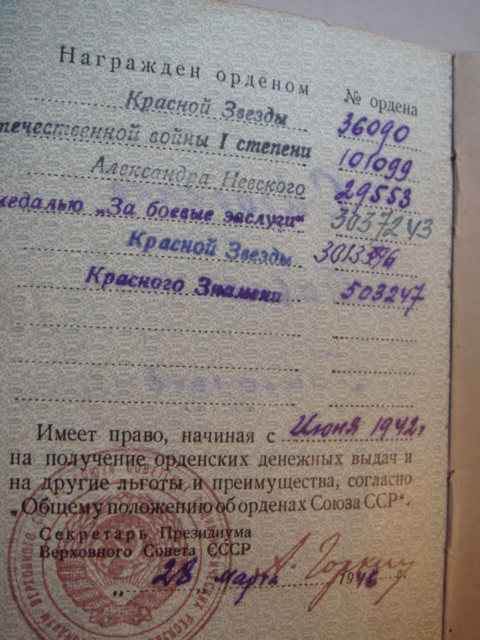 Награжден орденом
№ ордена
Красной Звезды 36090
течественной войны I степени 101099
Александра Невского 29553
медалью „За боевые заслуги“ 3037243
Красной Звезды
Красного Знамени 503247
Имеет право, начиная с Июня 1942г
на получение орденских денежных выдач и
на другие льготы и преимущества, согласно
„Общему положению об орденах Союза ССР“.
Секретарь Президиума
Верховного Совета СССР
А. Горкин
„28 марта 1946 г.